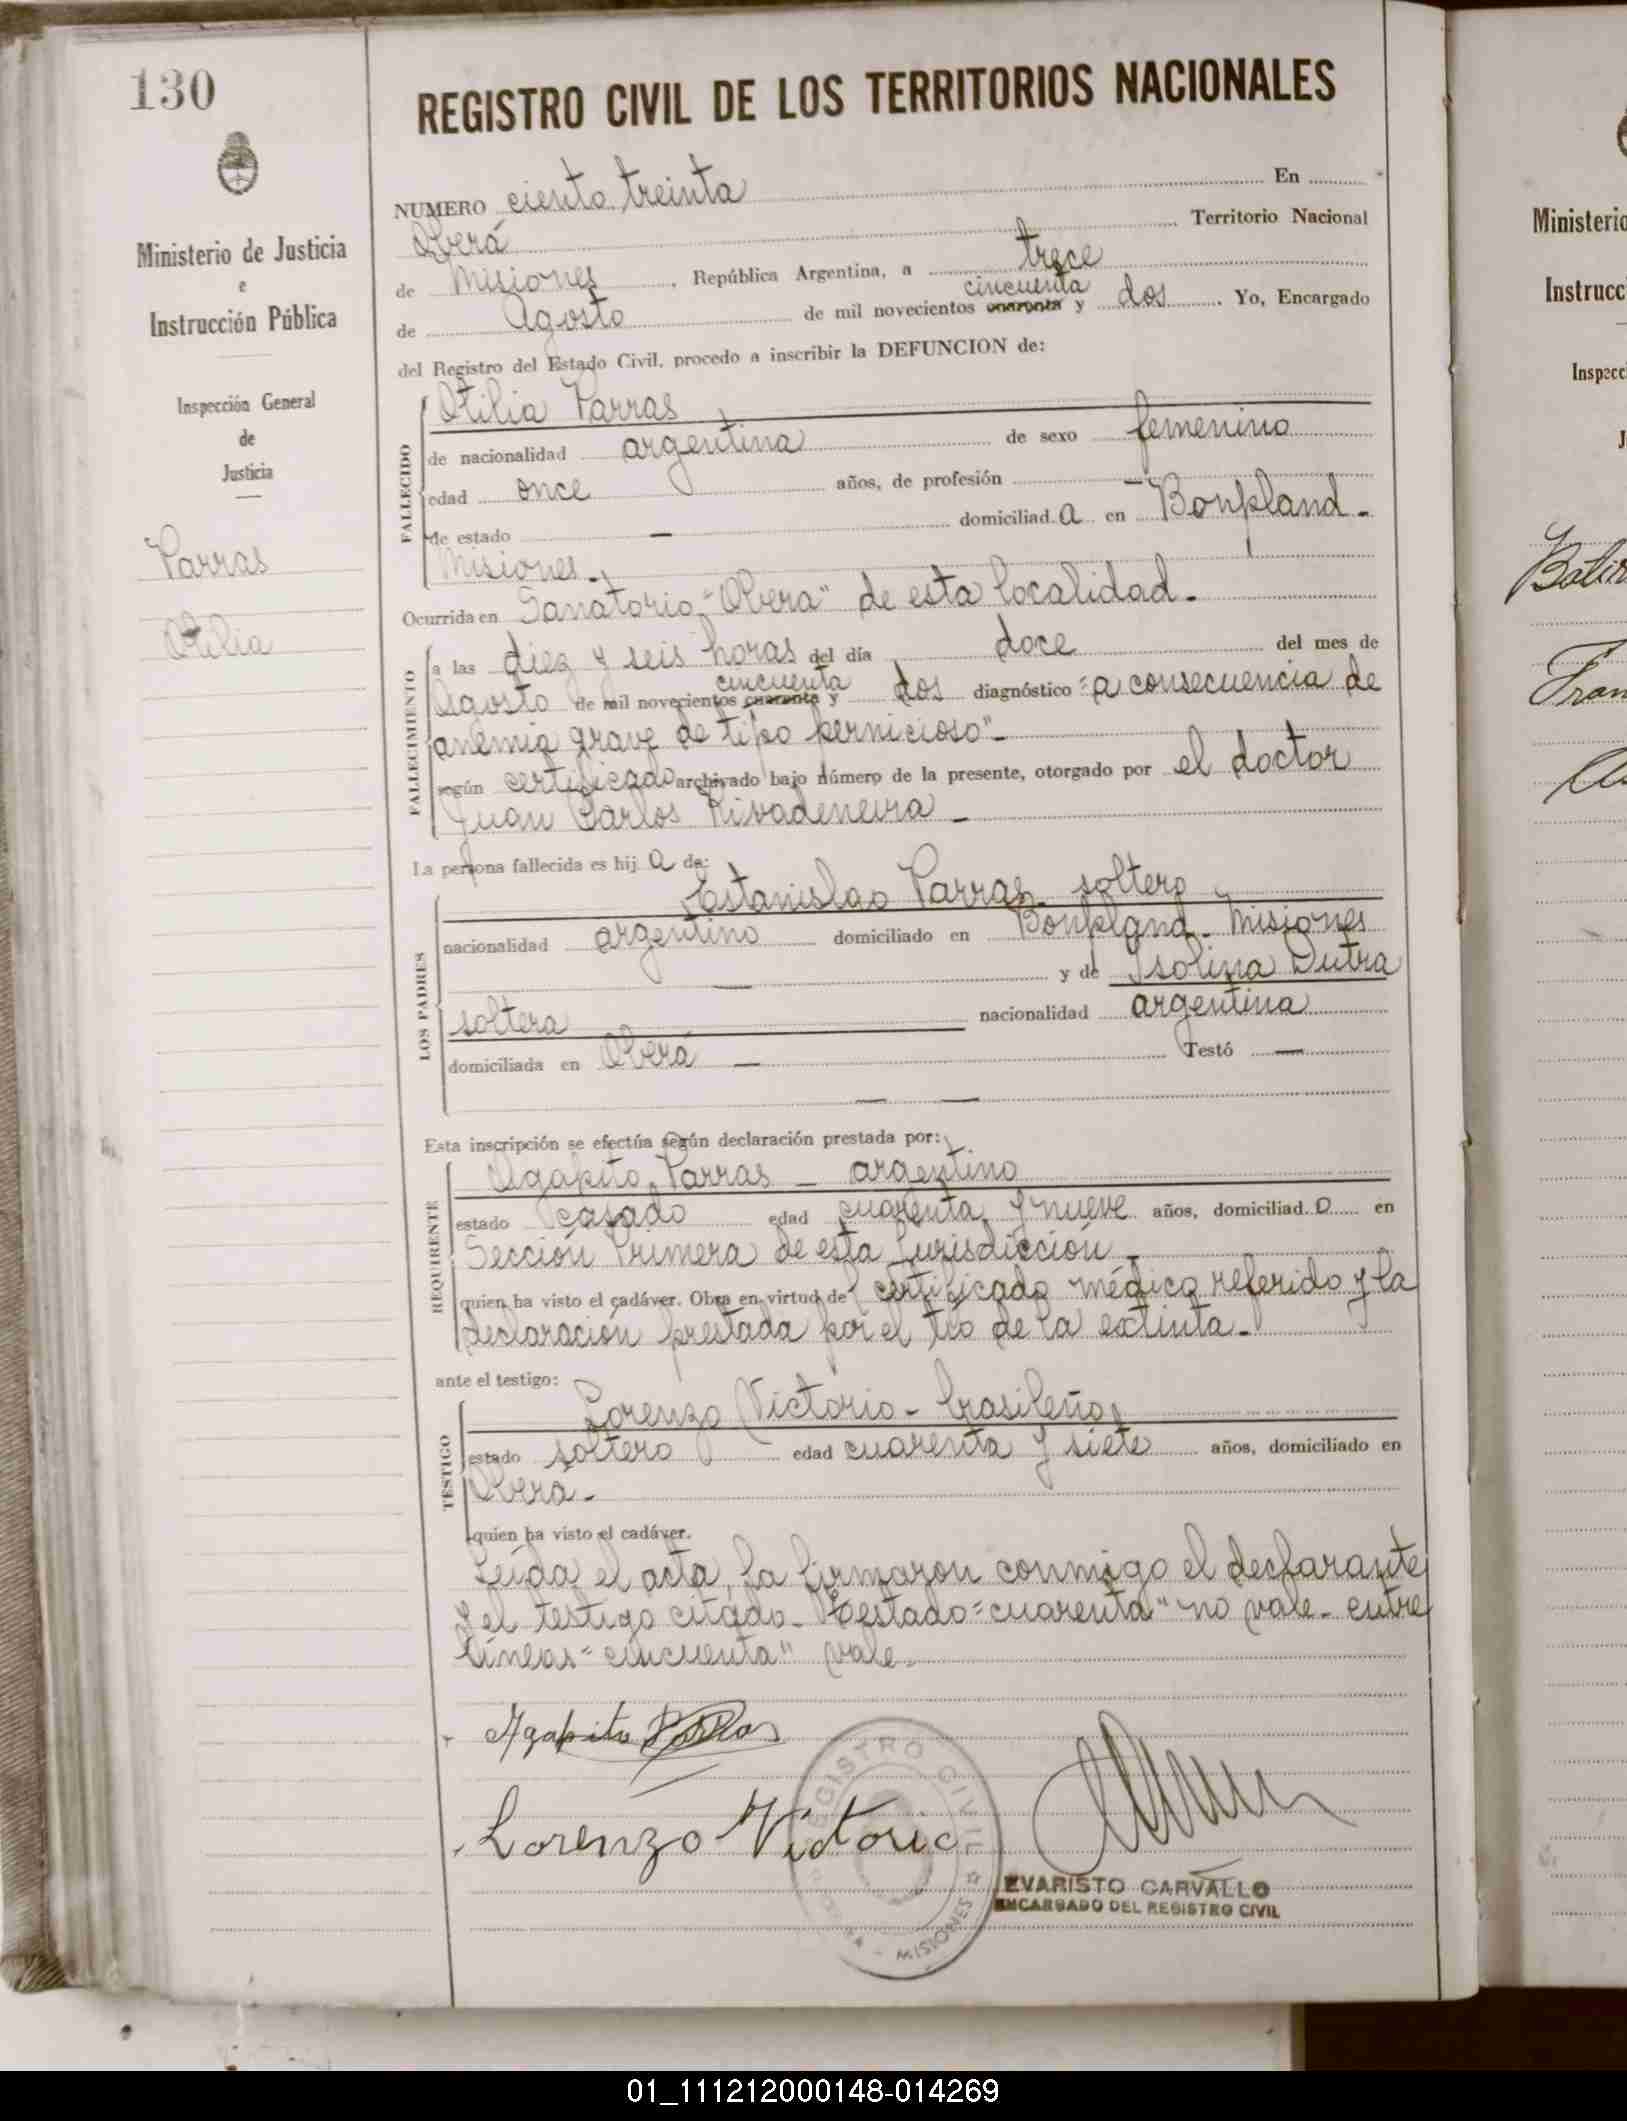 130
REGISTRO CIVIL DE LOS TERRITORIOS NACIONALES
Ministerio de Justicia
e
Instrucción Pública
Inspección General
de
Justicia
Parras
Otilia
NUMERO ciento treinta En
Oberá Territorio Nacional
de Misiones, República Argentina, a trece
de Agosto de mil novecientos cuarenta cincuenta y dos. Yo, Encargado
del Registro del Estado Civil, procedo a inscribir la DEFUNCION de:
FALLECIDO
Otilia Parras
de nacionalidad argentina de sexo femenino
edad once años, de profesión —
de estado — domiciliad a en Bonpland-
Misiones-
Ocurrida en Sanatorio "Oberá" de esta localidad-
FALLECIMIENTO
a las diez y seis horas del día doce del mes de
Agosto de mil novecientos cuarenta cincuenta y dos diagnóstico "a consecuencia de
anemia grave de tipo pernicioso"-
según certificado archivado bajo número de la presente, otorgado por el doctor
Juan Carlos Rivadeneira-
La persona fallecida es hij a de:
LOS PADRES
Estanislao Parras- soltero
nacionalidad argentino domiciliado en Bonpland- Misiones
— y de Isolina Dutra
soltera nacionalidad argentina
domiciliada en Oberá — Testó —
— —
Esta inscripción se efectúa según declaración prestada por:
REQUIRENTE
Agapito Parras - argentino
estado casado edad cuarenta y nueve años, domiciliad o en
Sección Primera de esta Jurisdicción-
quien ha visto el cadáver. Obra en virtud del certificado médico referido y la
declaración prestada por el tío de la extinta-
ante el testigo:
TESTIGO
Lorenzo Victorio- brasileño
estado soltero edad cuarenta y siete años, domiciliado en
Oberá-
quien ha visto el cadáver.
Leída el acta, la firmaron conmigo el declarante
y el testigo citado- Testado="cuarenta" no vale- entre
líneas="cincuenta" vale-
Agapito Parras
Lorenzo Victorio
REGISTRO CIVIL
MISIONES
EVARISTO CARVALLO
ENCARGADO DEL REGISTRO CIVIL
Ministerio
Instrucc
Inspecc
J
01_111212000148-014269